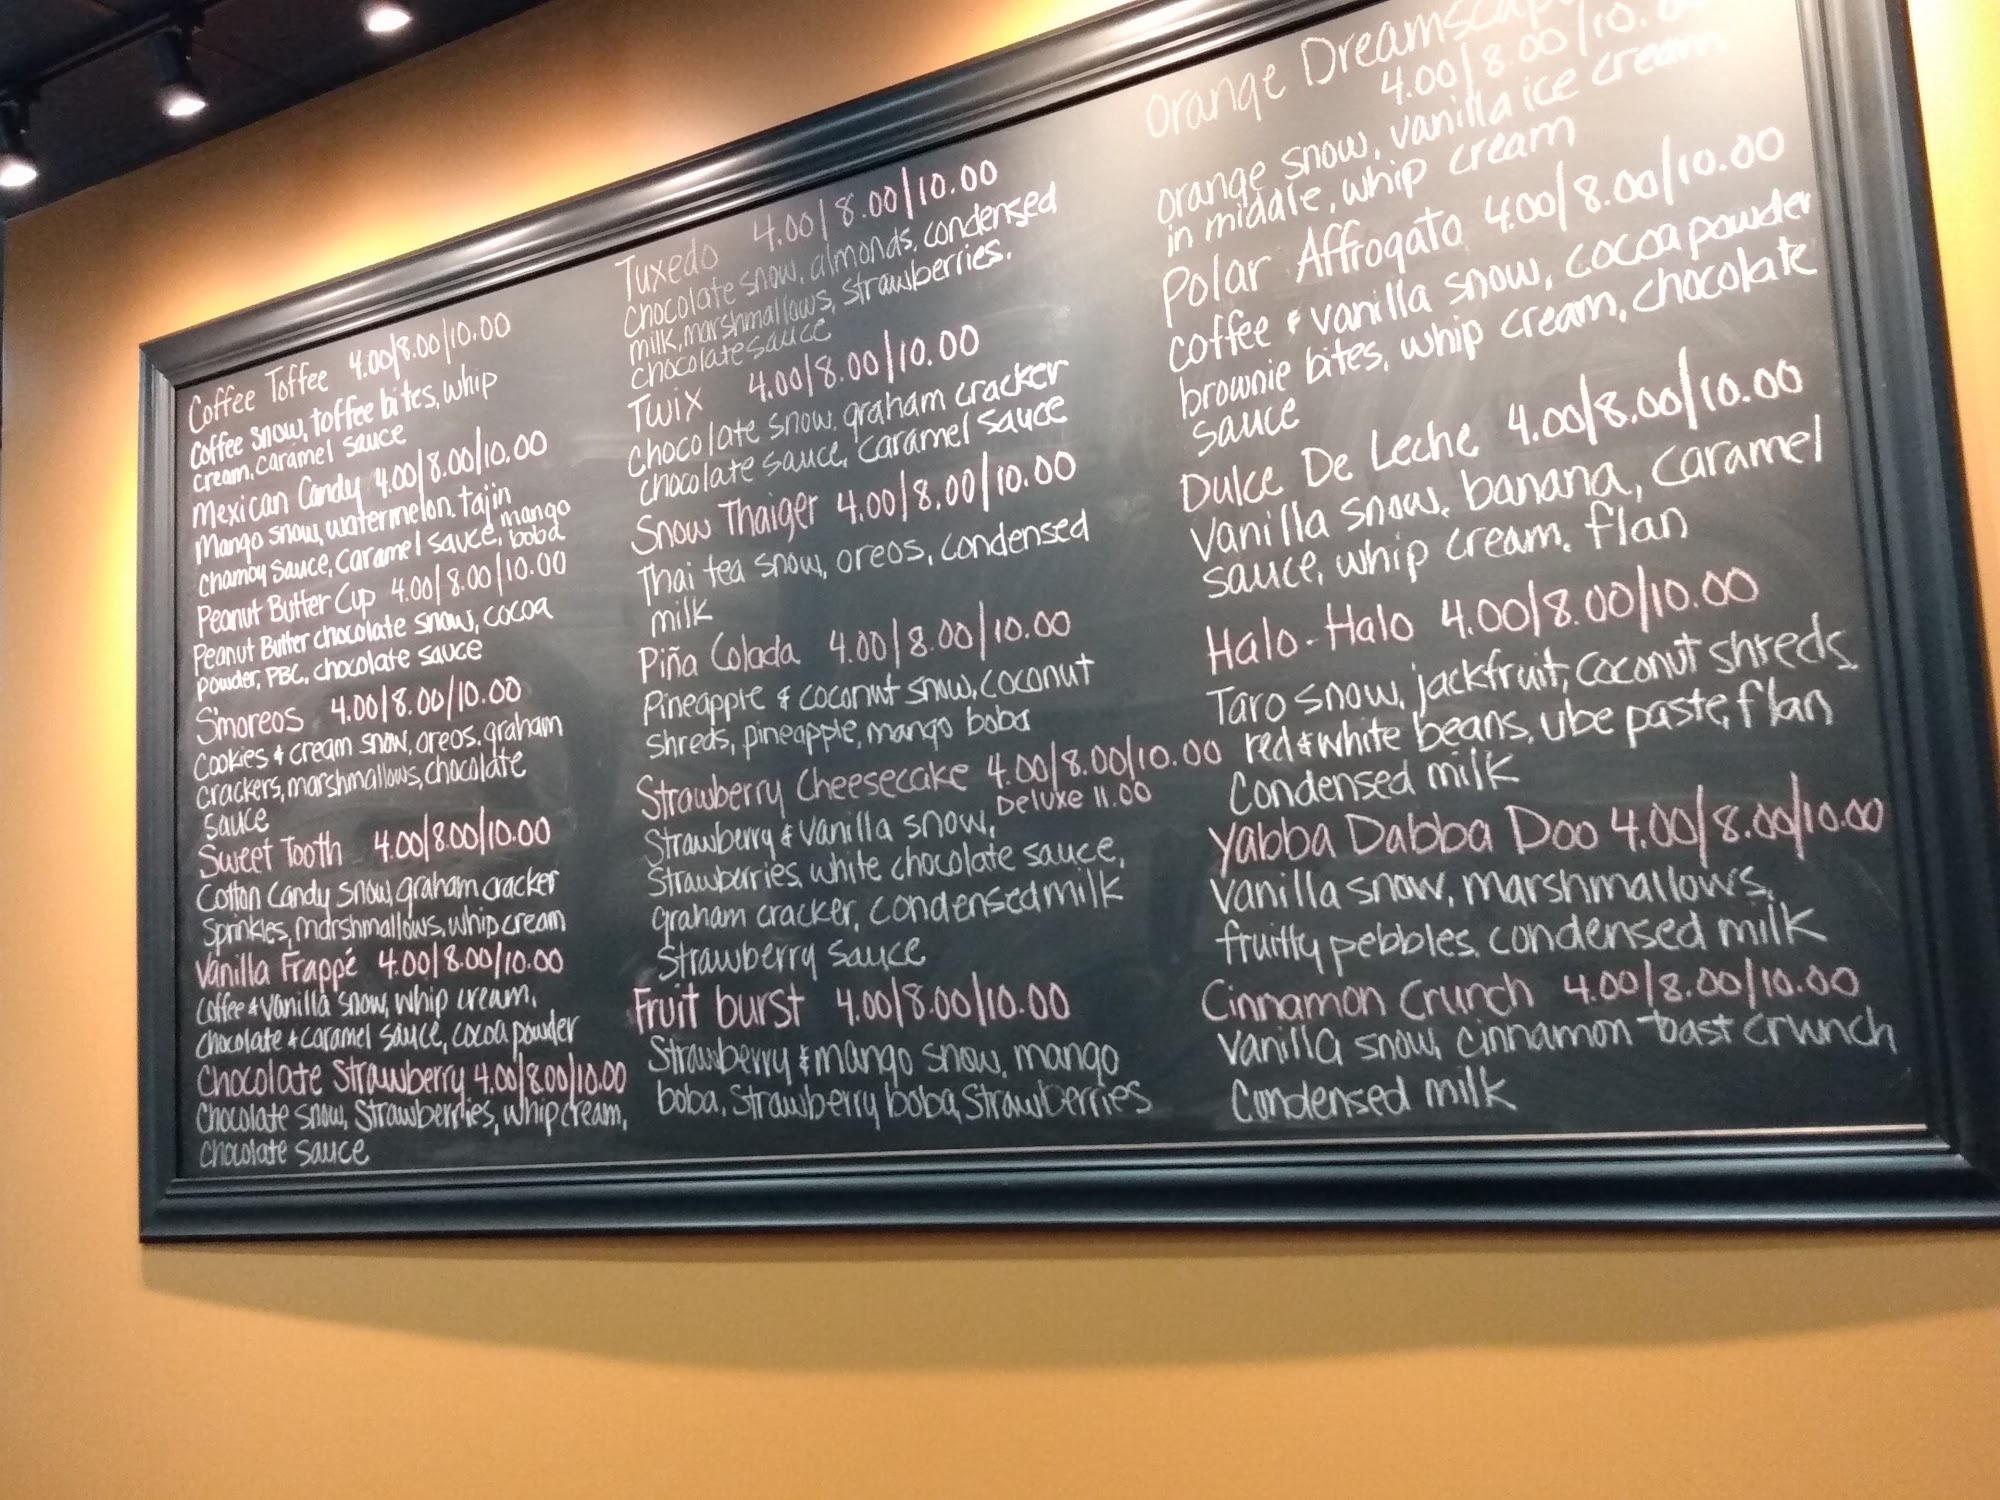 Coffee Toffee 4.00/8.00/10.00
Coffee snow, toffee bites, whip
cream, caramel sauce
Mexican Candy 4.00/8.00/10.00
Mango snow, watermelon, tajin
chamoy sauce, caramel sauce, mango
boba
Peanut Butter Cup 4.00/8.00/10.00
Peanut Butter chocolate snow, cocoa
powder, PBC, chocolate sauce
S'moreos 4.00/8.00/10.00
Cookies & cream snow, oreos, graham
crackers, marshmallows, chocolate
sauce
Sweet Tooth 4.00/8.00/10.00
Cotton Candy snow, graham cracker
Sprinkles, marshmallows, whip cream
Vanilla Frappé 4.00/8.00/10.00
Coffee & vanilla snow, whip cream,
chocolate & caramel sauce, cocoa powder
Chocolate Strawberry 4.00/8.00/10.00
Chocolate snow, strawberries, whip cream,
chocolate sauce
Tuxedo 4.00/8.00/10.00
chocolate snow, almonds, condensed
milk, marshmallows, strawberries.
chocolate sauce
Twix 4.00/8.00/10.00
chocolate snow, graham cracker
chocolate sauce, caramel sauce
Snow Thaiger 4.00/8.00/10.00
Thai tea snow, oreos, condensed
milk
Piña Colada 4.00/8.00/10.00
Pineapple & coconut snow, coconut
shreds, pineapple, mango boba
Strawberry Cheesecake 4.00/8.00/10.00
Deluxe 11.00
Strawberry & vanilla snow,
Strawberries, white chocolate sauce,
graham cracker, condensed milk
Strawberry sauce
Fruit burst 4.00/8.00/10.00
Strawberry & mango snow, mango
boba, strawberry boba, strawberries
Orange
4.00/8.00/10.
Orange snow, vanilla ice cream
in middle, whip cream
Polar Affrogato 4.00/8.00/10.00
coffee & vanilla snow, cocoa powder
brownie bites, whip cream, chocolate
sauce
Dulce De Leche 4.00/8.00/10.00
Vanilla snow, banana, caramel
sauce, whip cream, flan
Halo-Halo 4.00/8.00/10.00
Taro snow, jackfruit, coconut shreds
red & white beans, ube paste, flan
Condensed milk
Yabba Dabba Doo 4.00/8.00/10.00
Vanilla snow, marshmallows,
fruitty pebbles, condensed milk
Cinnamon Crunch 4.00/8.00/10.00
Vanilla snow, cinnamon toast crunch
Condensed milk